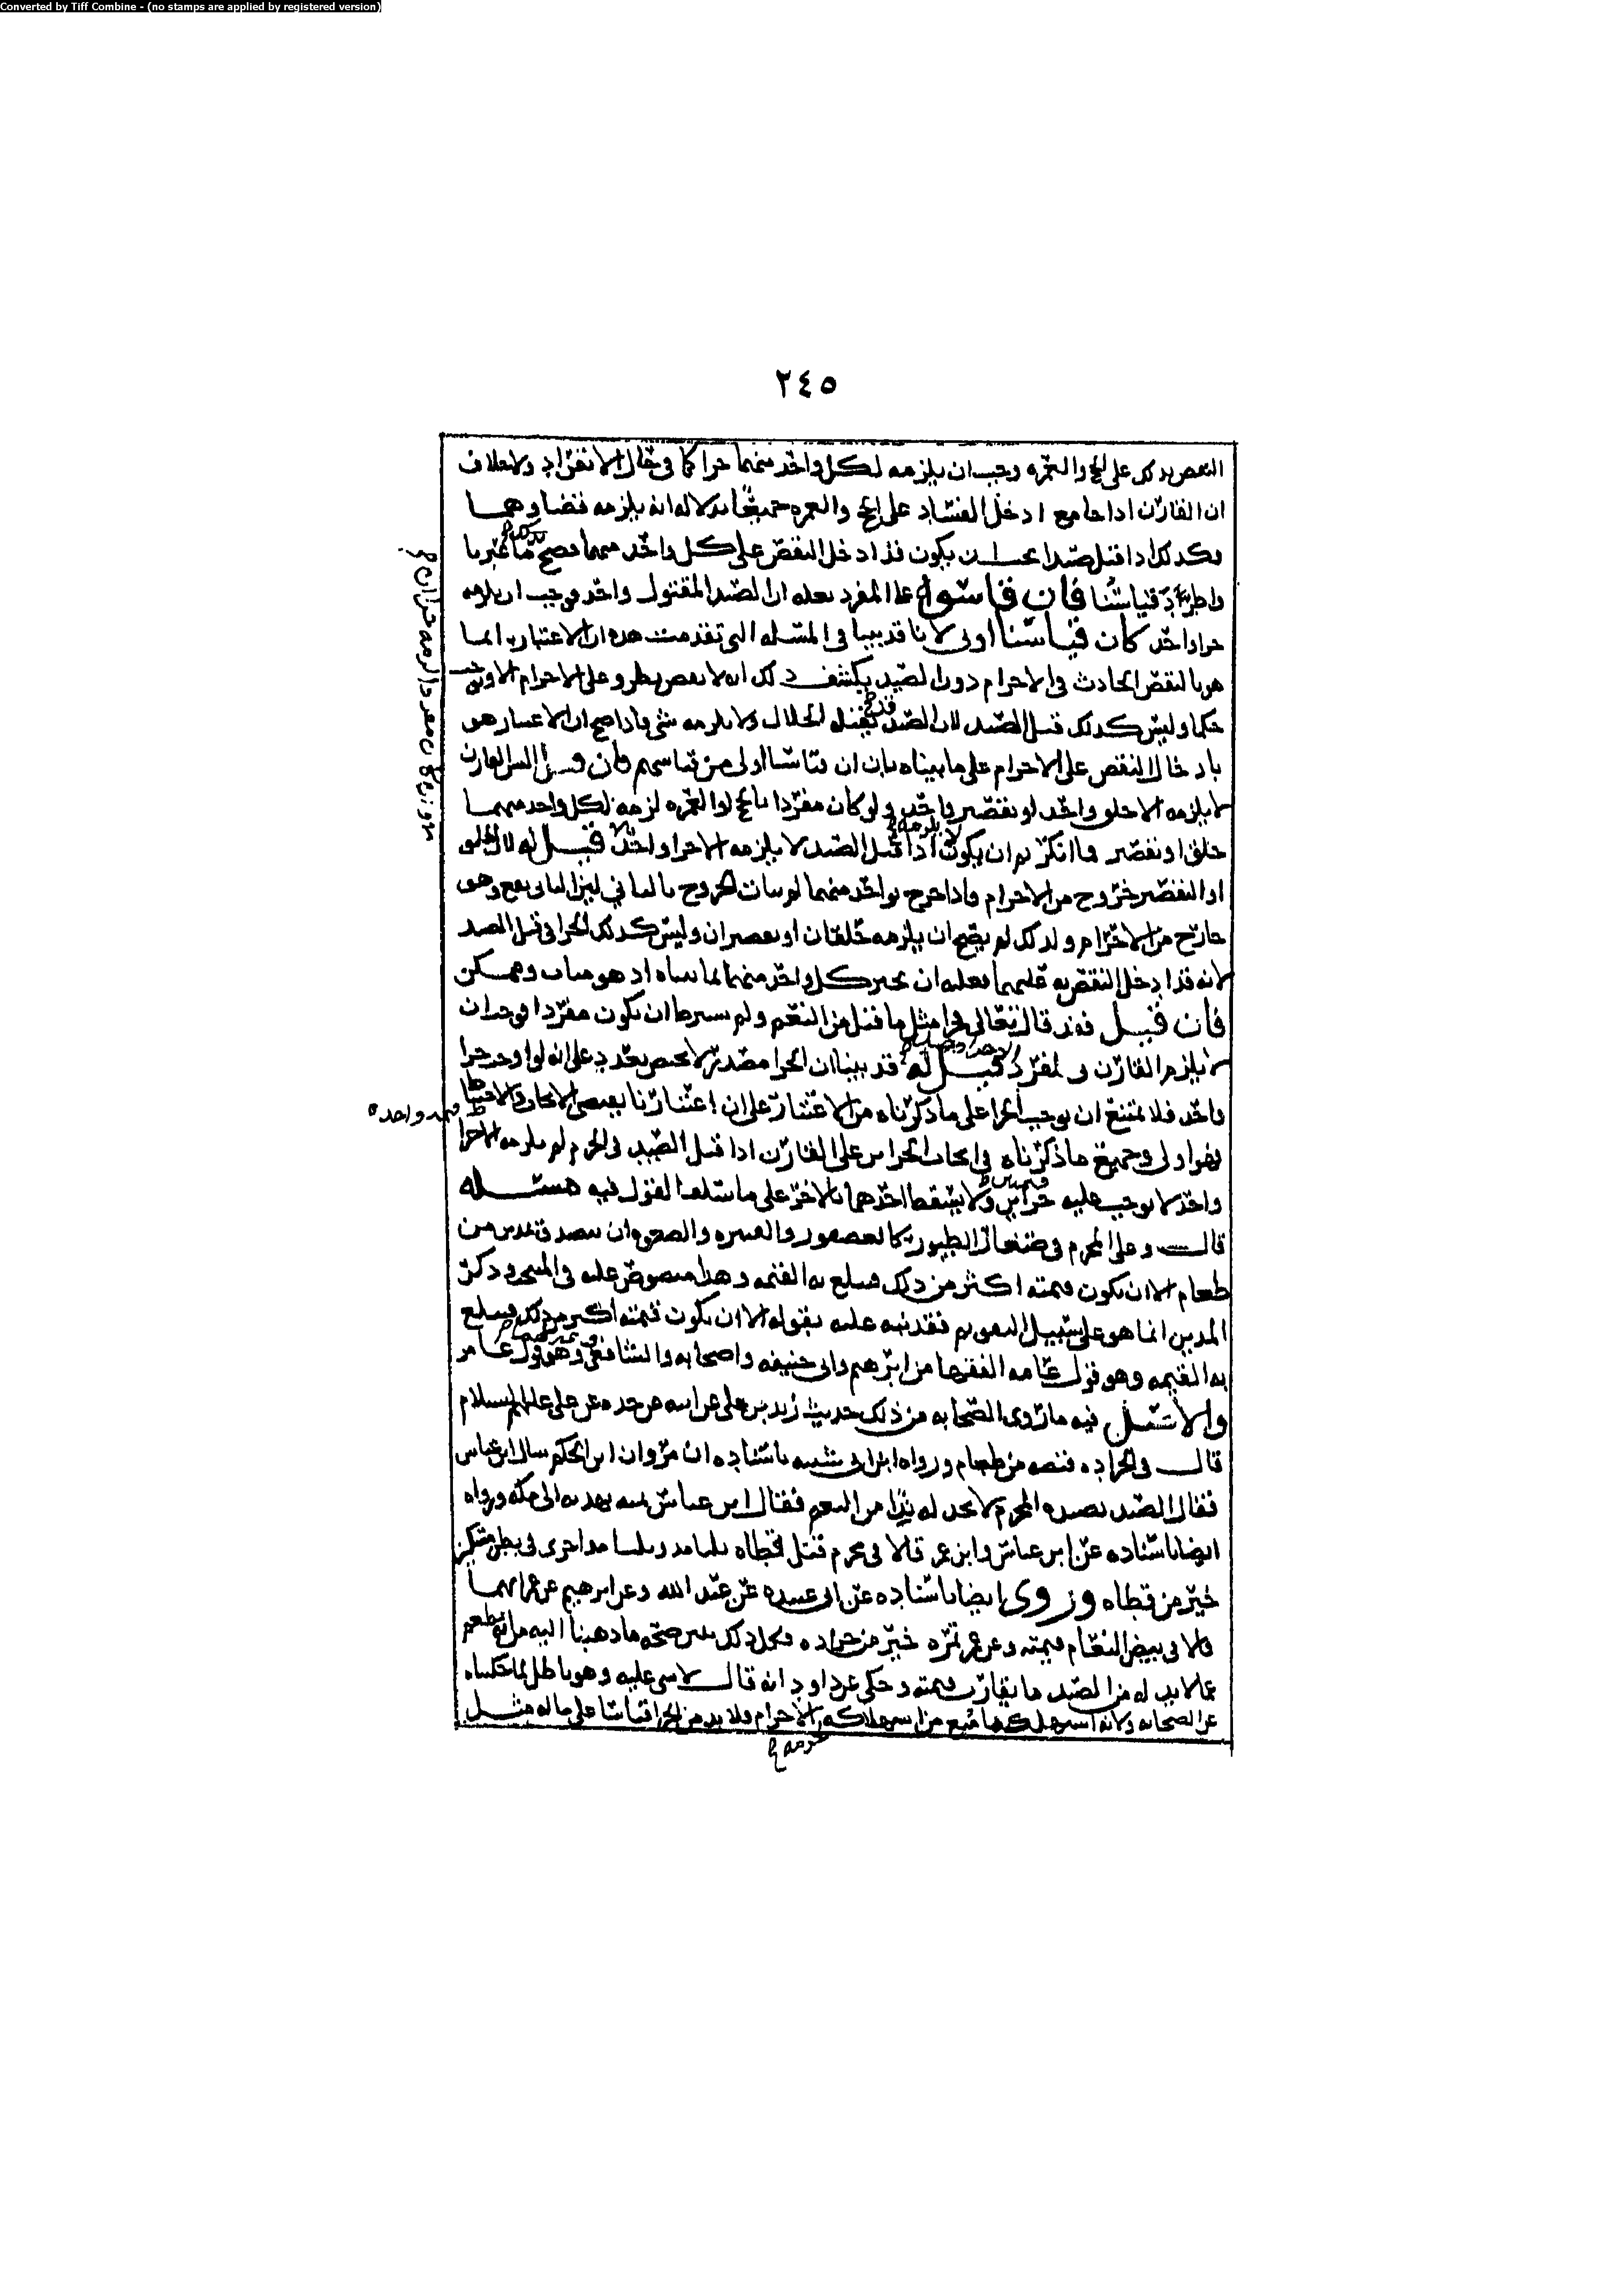 Converted by Tiff Combine - (no stamps are applied by registered version)
٢٤٥
بذلك على الحج والعمرة وجب ان يلزمه لكل واحد منهما جزا كما في حال الانفراد ولا خلاف
ان القارن اذا جامع ادخل الفساد على الحج والعمره جميعا بدلاله انه يلزمه قضاوهما
فكذلك اذا قتل صيدا يكون قد ادخل النقص على كل واحد منهما فصح
واطرد قياسنا فان قاسوا على المفرد بعله ان الصيد المقتول واحد فوجب ان يلزمه
جزا واحد كان قياسنا اولى لانا قد بينا في المسله التي تقدمت هذه ان الاعتبار انما
هو بالنقص الحادث في الاحرام دون الصيد يكشف ذلك انه لا نقص يطرو على الاحرام الا
حكما وليس كذلك قتل الصيد لان الصيد قد يقتله الحلال ولا يلزمه شي فاذا صح ان الاعتبار هو
بادخال النقص على الاحرام على ما بيناه بان ان قياسنا اولى من قياسهم فان قيل اليس القارن
لا يلزمه الا حلق واحد او تقصير واحد ولو كان مفردا بالحج او العمره لزمه لكل واحد منهما
حلق او تقصير فما انكرتم ان يكون اذا قتل الصيد لا يلزمه الا جزا واحد قيل له لان الحلق
او التقصير خروج من الاحرام فاذا خرج بواحد منهما لم يتات الخروج بالثاني لان الثاني يقع وهو
خارج من الاحرام ولذلك لم يصح ان يلزمه حلقان او تقصيران وليس كذلك الجزا في قتل الصيد
لانه قد ادخل النقص به عليهما فعليه ان يجبر كل واحد منهما لما بيناه اذ هو متات وممكن
فان قيل فقد قال تعالى فجزا مثل ما قتل من النعم ولم يشترط ان يكون مفردا فوجب ان
لا يلزم القارن قيل له قد بينا ان الجزا مصدر لا يختص بعدد على انه لو اوجب جزا
واحد فلا يمتنع ان يوجب الجزا على ما ذكرناه من الاعتبار على ان اعتبارنا يقتضي الايجاب والاحتياط
فهو اولى وجميع ما ذكرناه في ايجاب الجزاين على القارن اذا قتل الصيد في الحرم لم يلزمه الا جزا
قيمه واحده
واحد لا يوجب عليه جزاين ولا يسقط احدهما بالاخر على ما سلف القول فيه مسئله
قال وعلى المحرم في صغار الطيور كالعصفور والقنبره والصعوه ان يتصدق بمدين من
طعام الا ان تكون قيمته اكثر من ذلك فيبلغ به القيمه وهذا منصوص عليه في المنتخب وذكر
المدين انما هو على سبيل التقويم فقد نبه عليه بقوله الا ان تكون قيمته اكثر من ذلك فيبلغ
به القيمه وهو قول عامه الفقها من ابرهيم وابي حنيفه واصحابه والشافعي وهو قول عامر
والاصل فيه ما روى الصحابه من ذلك حديث زيد بن علي عن ابيه عن جده عن علي عليهم السلام
قال في الجراده قبضه من طعام ورواه ابن ابي شيبه باسناده ان مروان ابن الحكم سال ابن عباس
فقال الصيد يصيده المحرم لا يجد له ندا من النعم فقال ابن عباس ثمنه يهديه الى مكه ورواه
ايضا باسناده عن ابن عباس وابن عمر قالا في محرم قتل قطاه ثلثا مد وثلثا مد اخرى في بطن مسكين
خير من قطاه وروى ايضا باسناده عن ابي عبيده عن عبد الله وعن ابرهيم عن عمر انهما
قالا في بيض النعام قيمته وعن عمر تمره خير من جراده فكل ذلك يبين صحه ما ذهبنا اليه من انه يطعم
عما لا بد له من الصيد ما يقارب قيمته وحكي عن داود انه قال لا شي عليه وهو باطل لما حكيناه
عن الصحابه ولانه استهلك ما منع من استهلاكه الاحرام فلا بد من الجزا قياسا على ما له مثل